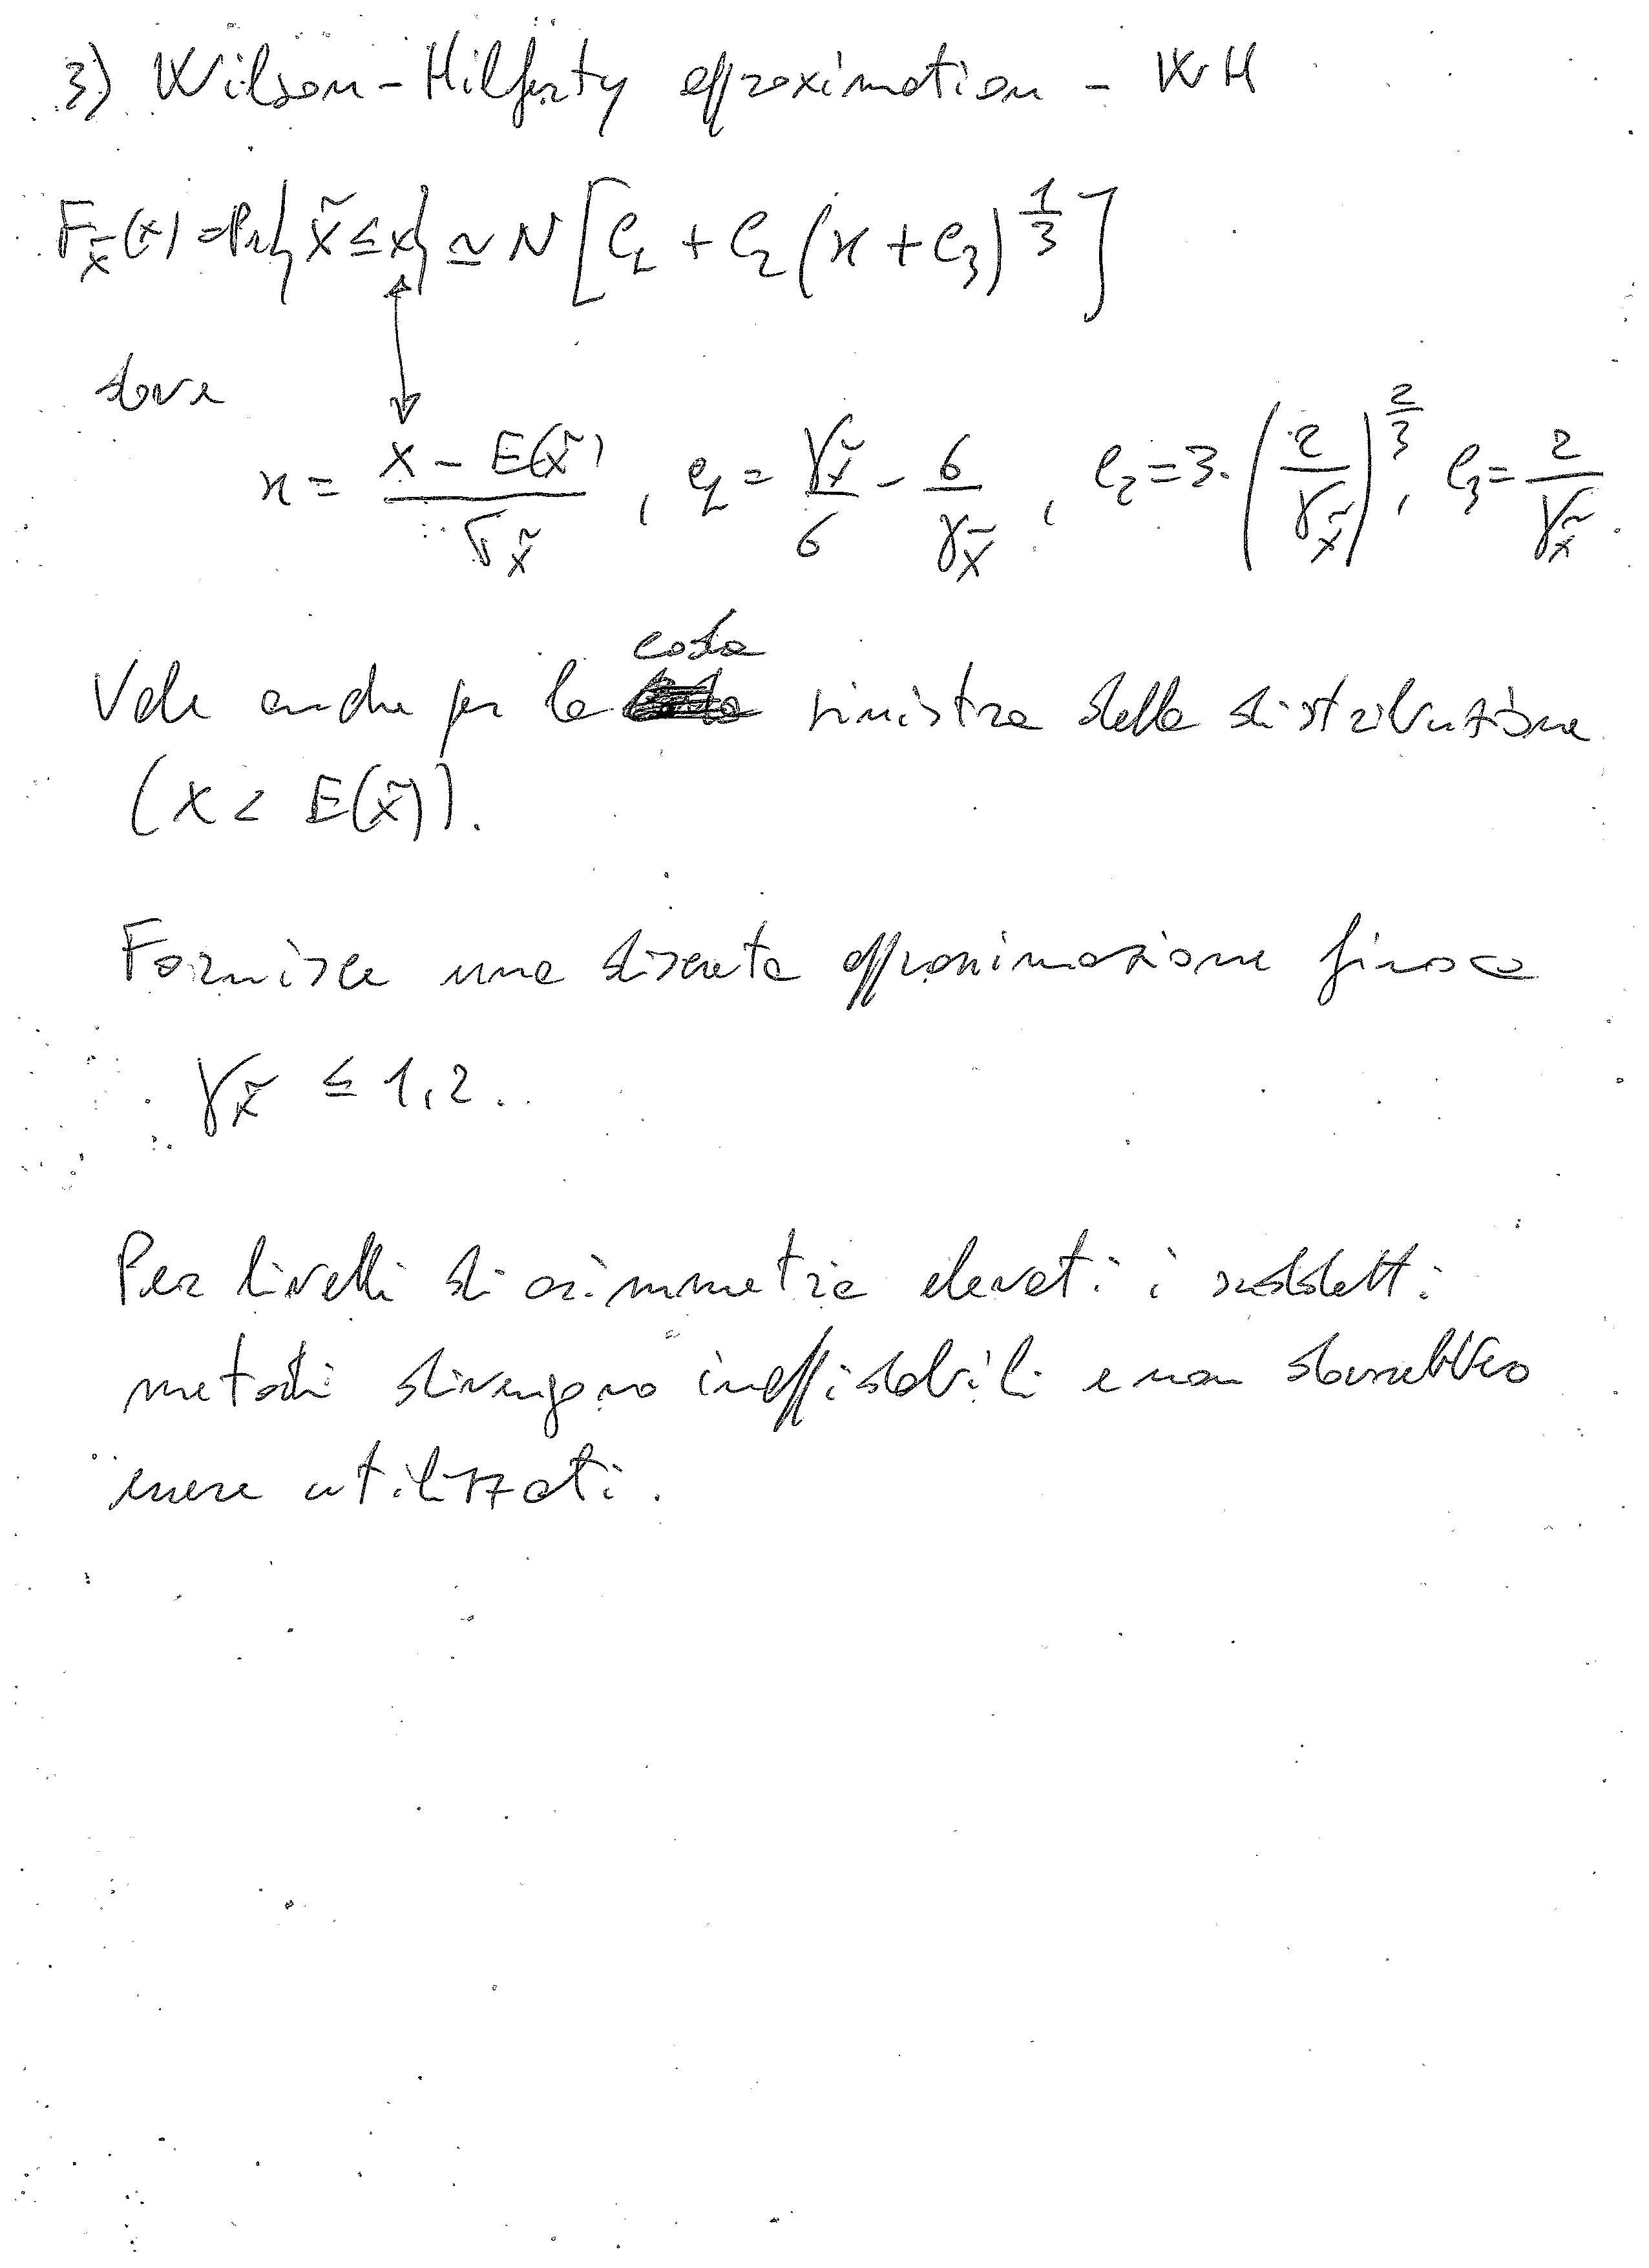 3) Wilson-Hilferty approximation - WH
F_X̃(x) = Pr{X̃ ≤ x} ≃ N[c₁ + c₂(x + c₃)^(1/3)]
dove
x = (X - E(X̃))/σ_X̃, c₁ = γ_X̃/6 - 6/γ_X̃, c₂ = 3·(2/γ_X̃)^(2/3), c₃ = 2/γ_X̃.
Vale anche per la coda sinistra della distribuzione
(X < E(X̃)).
Fornisce una discreta approssimazione fino a
γ_X̃ ≤ 1,2.
Per livelli di asimmetria elevati i suddetti
metodi divengono inaffidabili e non dovrebbero
essere utilizzati.